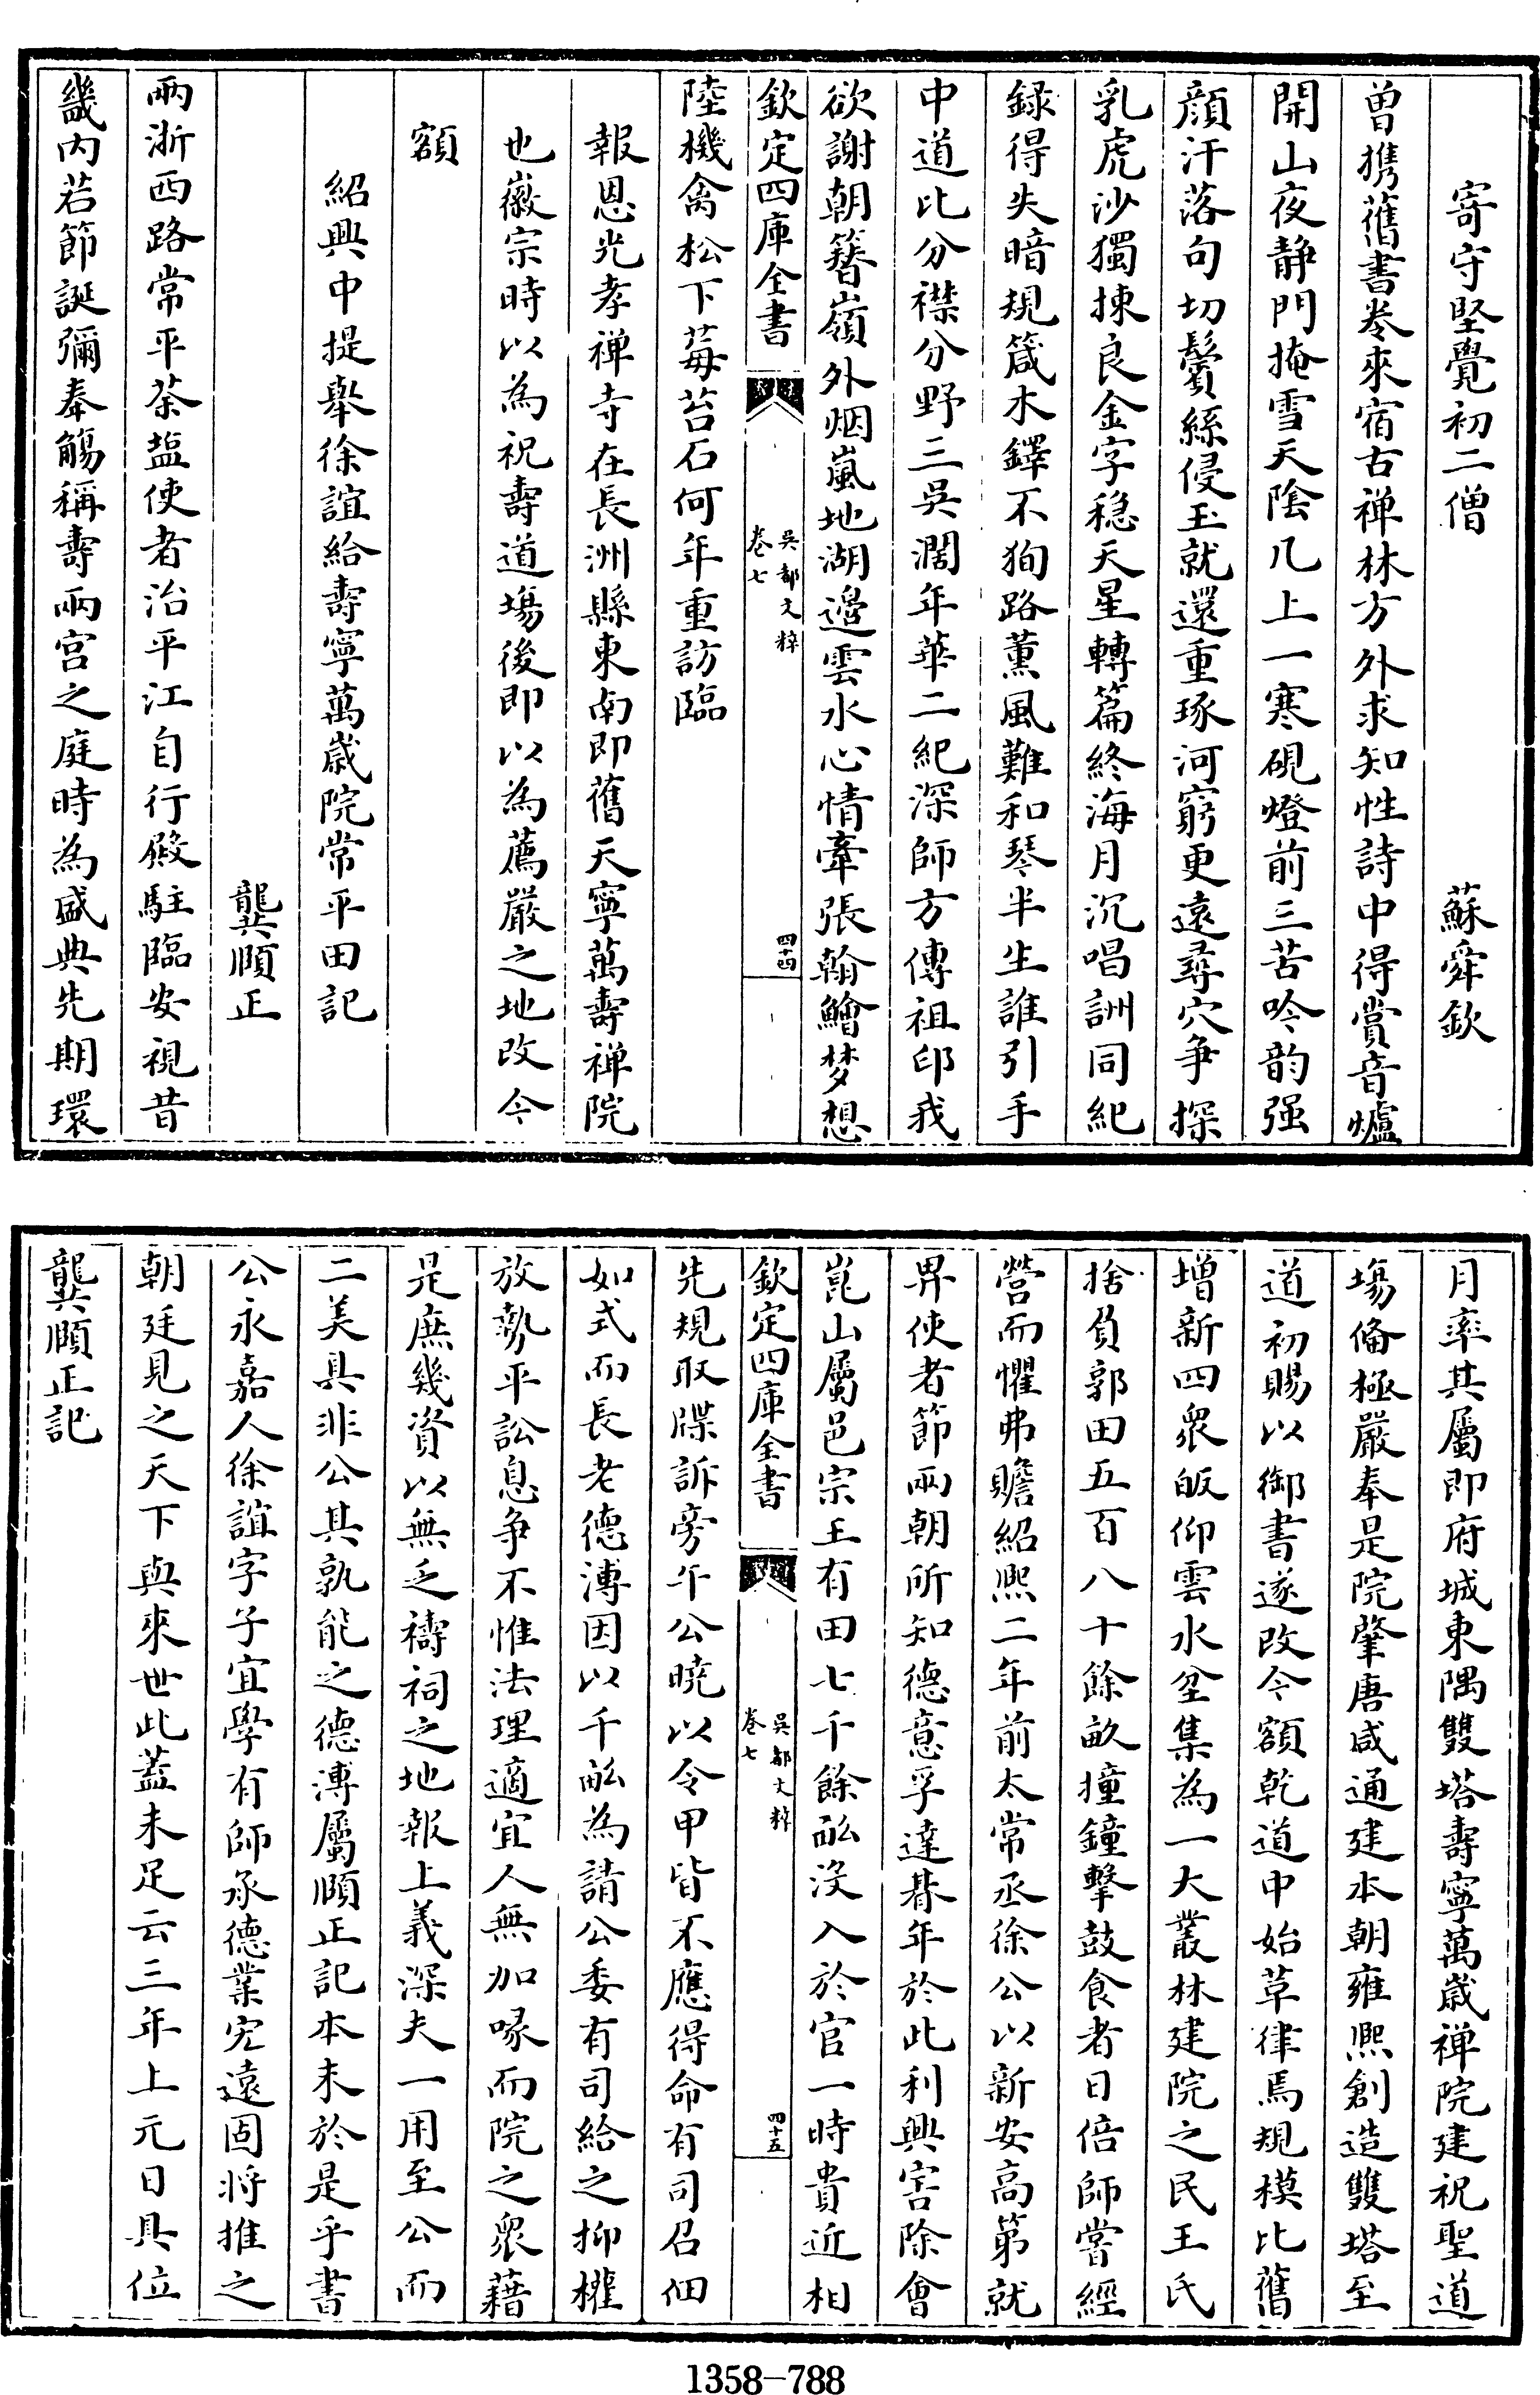 寄守堅覺初二僧　蘇舜欽
曽携舊書卷來宿古禅林方外求知性詩中得賞音爐
開山夜静門掩雪天陰几上一寒硯燈前三苦吟韵强
顔汗落句切鬢絲侵玉就還重琢河窮更遠尋穴争探
乳虎沙獨揀良金字穏天星轉篇終海月沉唱訓同紀
録得失暗規箴木鐸不狥路薰風難和琴半生誰引手
中道比分襟分野三吳濶年華二紀深師方傳祖印我
欲謝朝簪嶺外烟嵐地湖邉雲水心情牽張翰鱠梦想
欽定四庫全書
吳都文粹
卷七
四十四
陸機禽松下莓苔石何年重訪臨
報恩光孝禅寺在長洲縣東南即舊天寧萬壽禅院
也徽宗時以為祝壽道場後即以為薦嚴之地改今
額
紹興中提舉徐誼給壽寧萬歲院常平田記
龔順正
兩浙西路常平茶盐使者治平江自行殿駐臨安視昔
畿内若節誕彌奉觴稱壽兩宫之庭時為盛典先期環
月率其屬即府城東隅雙塔壽寧萬歲禅院建祝聖道
場俻極嚴奉是院肇唐咸通建本朝雍熙創造雙塔至
道初賜以御書遂改今額乾道中始草律焉規模比舊
增新四衆皈仰雲水坌集為一大叢林建院之民王氏
捨負郭田五百八十餘畝撞鐘擊鼓食者日倍師嘗經
營而懼弗贍紹熙二年前太常丞徐公以新安高第就
畀使者節兩朝所知德意孚達朞年於此利興害除會
崑山屬邑宗王有田七千餘畝没入於官一時貴近相
欽定四庫全書
吳都文粹
卷七
四十五
先規取牒訴旁午公曉以令甲皆不應得命有司召佃
如式而長老德溥因以千畝為請公委有司給之抑權
放勢平訟息争不惟法理適宜人無加喙而院之衆藉
是庶幾資以無乏禱祠之地報上義深夫一用至公而
二美具非公其孰能之德溥屬順正記本末於是乎書
公永嘉人徐誼字子宜學有師承德業宏遠固將推之
朝廷見之天下與來世此葢未足云三年上元日具位
龔順正記
1358-788